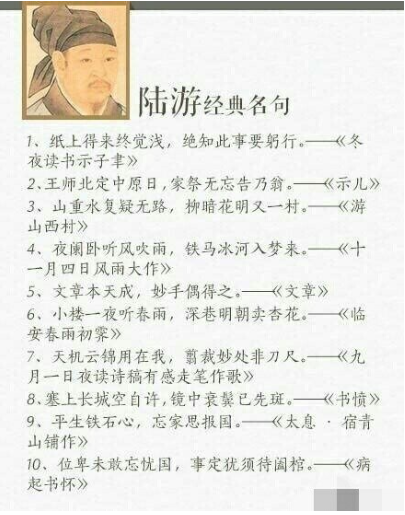 陆游经典名句
1、纸上得来终觉浅，绝知此事要躬行。——《冬
夜读书示子聿》
2、王师北定中原日，家祭无忘告乃翁。——《示儿》
3、山重水复疑无路，柳暗花明又一村。——《游
山西村》
4、夜阑卧听风吹雨，铁马冰河入梦来。——《十
一月四日风雨大作》
5、文章本天成，妙手偶得之。——《文章》
6、小楼一夜听春雨，深巷明朝卖杏花。——《临
安春雨初霁》
7、天机云锦用在我，翦裁妙处非刀尺。——《九
月一日夜读诗稿有感走笔作歌》
8、塞上长城空自许，镜中衰鬓已先斑。——《书愤》
9、平生铁石心，忘家思报国。——《太息·宿青
山铺作》
10、位卑未敢忘忧国，事定犹须待阖棺。——《病
起书怀》